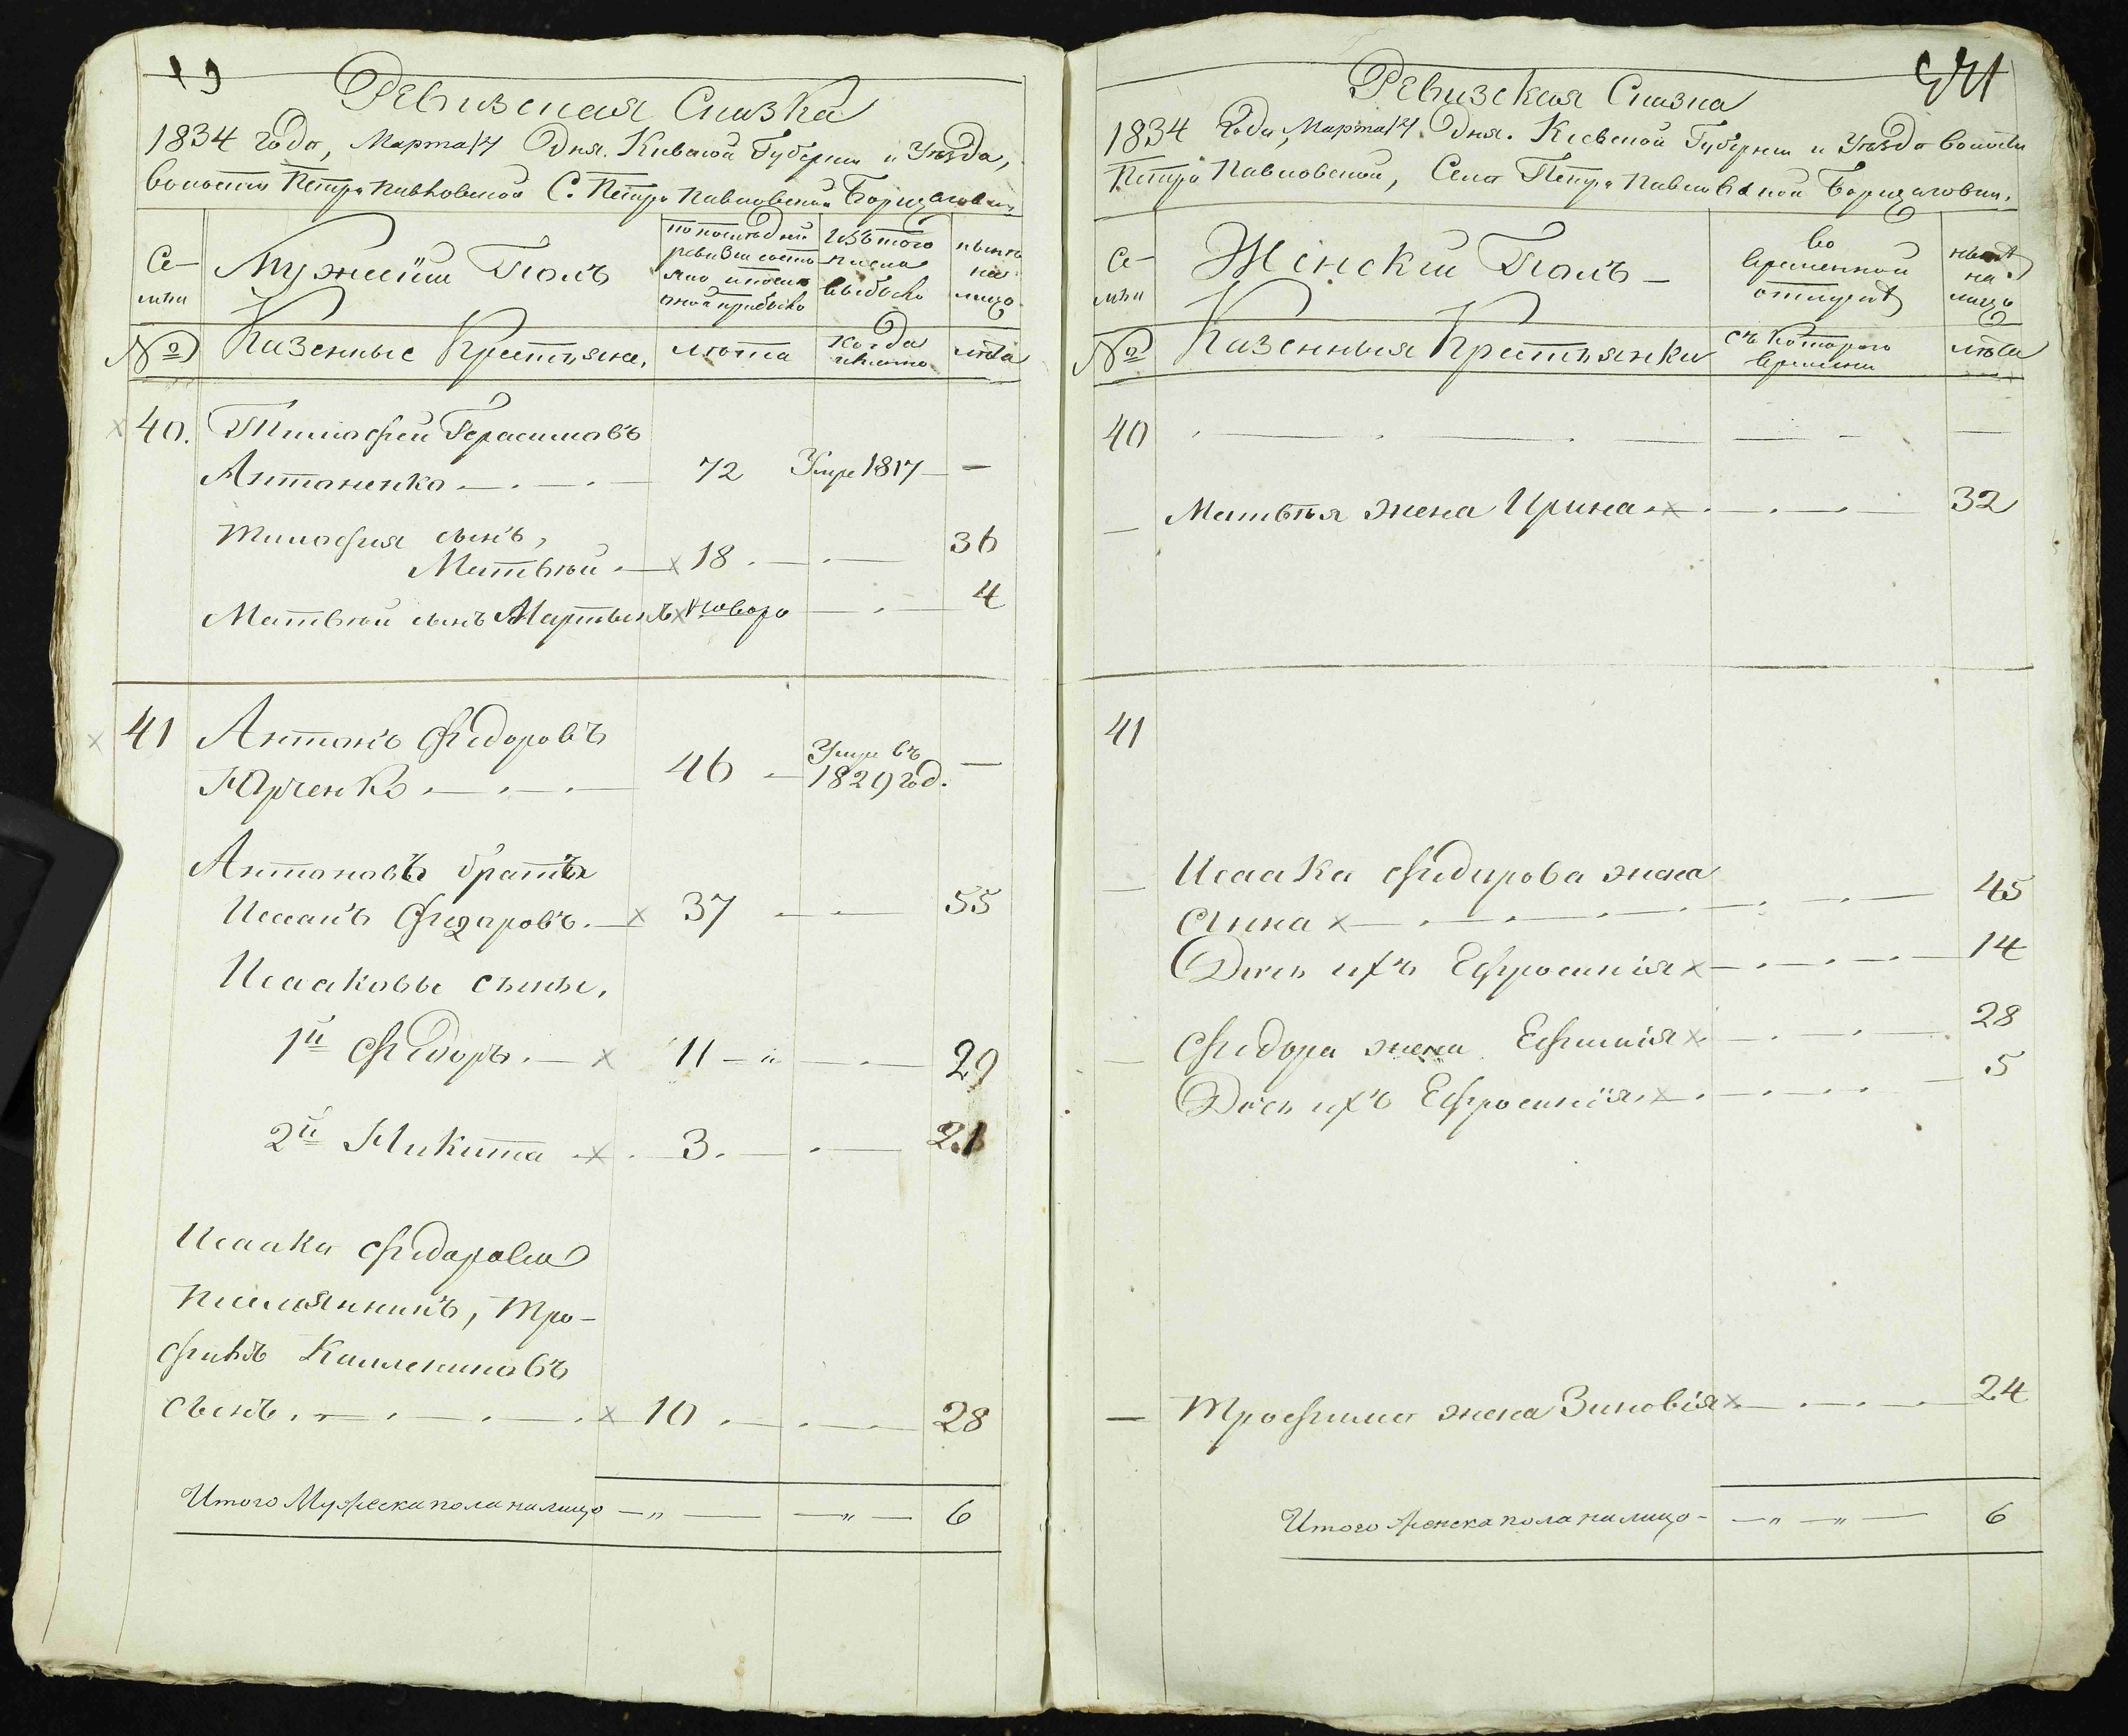 19
Ревизская Сказка
1834 года, Марта 17 Дня. Киевской Губернии и Уезда,
волости Петро Павловской С. Петро Павловской Борщаговки
Се-
мьи
Мужеский Полъ
по последней
ревизии состо
яло и после
оной прибыло
Изъ того
числа
выбыло
ныне
на
лицо
№
Казенные Крестьяне,
лета
когда
именно
лета
40. Тимофей Герасимовъ
Антоненко 72 Умре 1817 —
Тимофея сынъ,
Матвей 18 36
Матвей сынъ Мартынъ новоро 4
41 Антонъ Федоровъ
Юрченко 46 Умре въ 1829 год. —
Антоновъ братъ
Исаакъ Федоровъ 37 55
Исааковы сыны,
1й Федоръ 11 29
2й Никита 3. 21
Исаака Федорова
племянникъ, Тро-
фимъ
сынъ 10 28
Итого Мужеска пола на лицо 6
541
Ревизская Сказка
1834 года, Марта 17 Дня. Киевской Губернии и Уезда волости
Петро Павловской, Села Петро Павловской Борщаговки.
Се-
мьи
Женский Полъ
во
временной
отлучке
ныне
на
лицо
№
Казенныя Крестьянки
съ котораго
времени
лета
40
Матвея жена Ирина 32
41
Исаака Федорова жена
Анна 45
Дочь ихъ Ефросинія 14
Федора жена Ефимія 28
Дочь ихъ Ефросинія 5
Трофима жена Зиновія 24
Итого женска пола на лицо 6